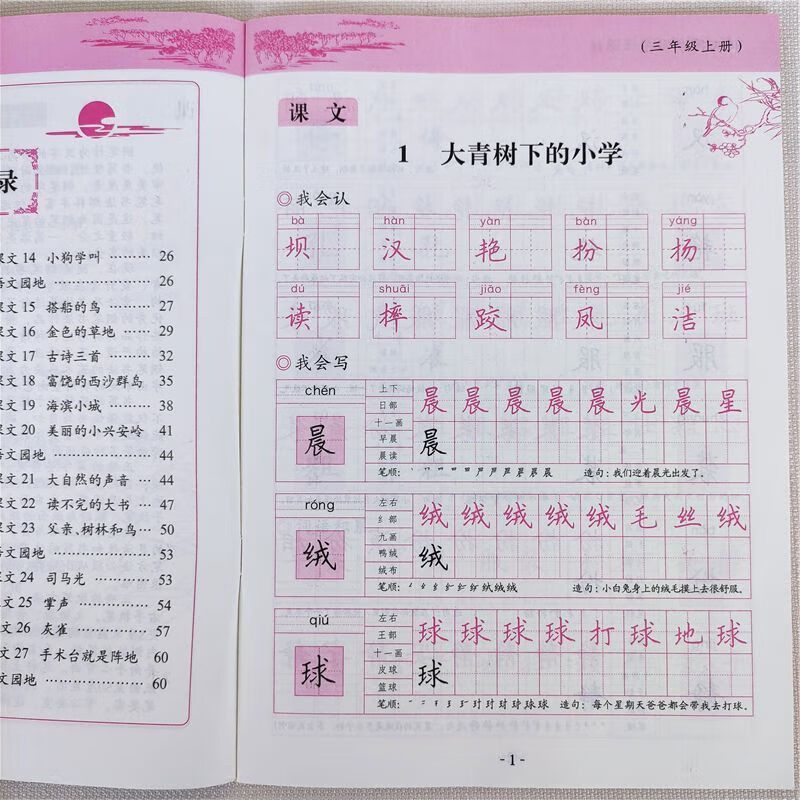 录
课文 14 小狗学叫 ……… 26
语文园地 ……… 26
课文 15 搭船的鸟 ……… 27
课文 16 金色的草地 ……… 29
课文 17 古诗三首 ……… 32
课文 18 富饶的西沙群岛 35
课文 19 海滨小城 ……… 38
课文 20 美丽的小兴安岭 41
语文园地 ……… 44
课文 21 大自然的声音 … 44
课文 22 读不完的大书 … 47
课文 23 父亲、树林和鸟 … 50
语文园地 ……… 53
课文 24 司马光 ……… 53
课文 25 掌声 ……… 54
课文 26 灰雀 ……… 57
课文 27 手术台就是阵地 60
语文园地 ……… 60
(三年级上册)
课 文
1 大青树下的小学
◎我会认
bà hàn yàn bàn yáng
坝 汉 艳 扮 扬
dú shuāi jiāo fèng jié
读 摔 跤 凤 洁
◎我会写
chén
晨
上下
日部
十一画
早晨
晨读
晨 晨 晨 晨 晨 光 晨 星
晨
笔顺:
造句:我们迎着晨光出发了。
róng
绒
左右
纟部
九画
鸭绒
绒布
绒 绒 绒 绒 绒 毛 丝 绒
绒
笔顺:
造句:小白兔身上的绒毛摸上去很舒服。
qiú
球
左右
王部
十一画
皮球
篮球
球 球 球 球 打 球 地 球
球
笔顺:
造句:每个星期天爸爸都会带我去打球。
- 1 -